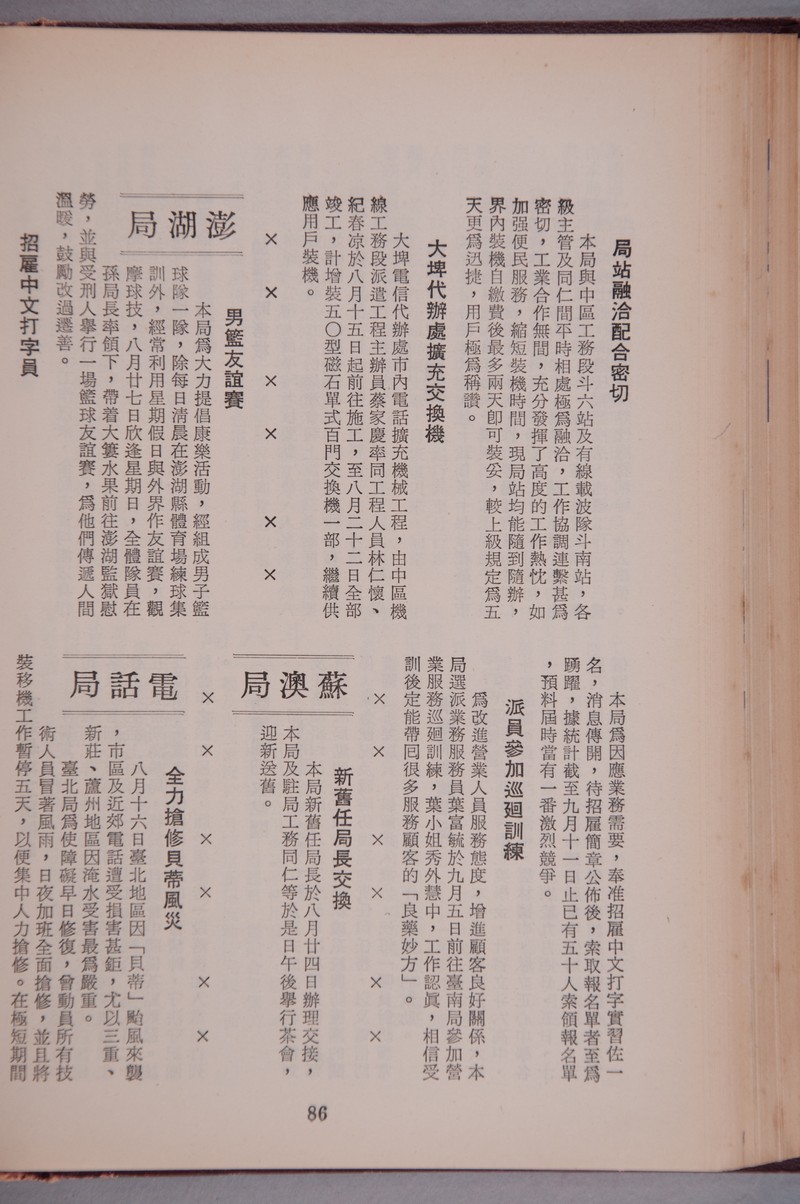 局站融洽配合密切
本局與中區工務段斗六站及有線載波隊斗南站，各
級主管及同仁間平時相處極爲融洽，工作協調連繫甚爲
密切，工業合作無間，充分發揮了高度的工作熱忱，如
加强便民服務，縮短裝機時間，現局站均能隨到隨辦，
界內裝機自繳費後最多兩天卽可裝妥，較上級規定爲五
天更爲迅捷，用戶極爲稱讚。
大埤代辦處擴充交換機
大埤電信代辦處市內電話擴充機械工程，由中區機
線工務段派遣工程主辦員蔡家慶率同工程人員林仁懷、
紀春凉於八月十五日起前往施工，至八月二十二日全部
竣工，計增裝五〇型磁石單式百門交換機一部，繼續供
應用戶裝機。
× × × × × ×
澎湖局
男籃友誼賽
本局爲大力提倡康樂活動，經組成男子籃
球隊一隊，除每日清晨在澎湖縣體育場練球集
訓外，經常利用星期假日與外界作友誼賽，觀
摩球技，八月廿七日欣逢星期日，全體隊員在
孫局長率領下，帶着大簍水果前往澎湖監獄慰
勞，並與受刑人擧行一場籃球友誼賽，爲他們傳遞人間
溫暖，鼓勵改過遷善。
招雇中文打字員
本局爲因應業務需要，奉准招雇中文打字實習佐一
名，消息傳開，待招雇簡章公佈後，索取報名單者至爲
踴躍，據統計截至九月十一日止已有五十人索領報名單
，預料屆時當有一番激烈競爭。
派員參加巡廻訓練
爲改進營業人員服務態度，增進顧客良好關係，本
局選派業務服務員葉富毓於九月五日前往臺南局參加營
業服務巡廻訓練，葉小姐秀外慧中，工作認眞，相信受
訓後定能帶囘很多服務顧客的「良藥妙方」。
× × × × × ×
蘇澳局
新舊任局長交換
本局新舊任局長於八月廿四日辦理交接，
本局及駐局工務同仁等於是日午後擧行茶會，
迎新送舊。
× × × × × ×
電話局
全力搶修貝蒂風災
八月十六日臺北地區因「貝蒂」颱風來襲
，市區及近郊電話遭受損害甚鉅，尤以三重、
新莊、蘆州地區因淹水受害最爲嚴重。
臺北局爲使障礙早日修復，曾動員所有技
術人員冒著風雨，日夜加班全面搶修，並且將
裝移機工作暫停五天，以便集中人力搶修。在極短期間
86